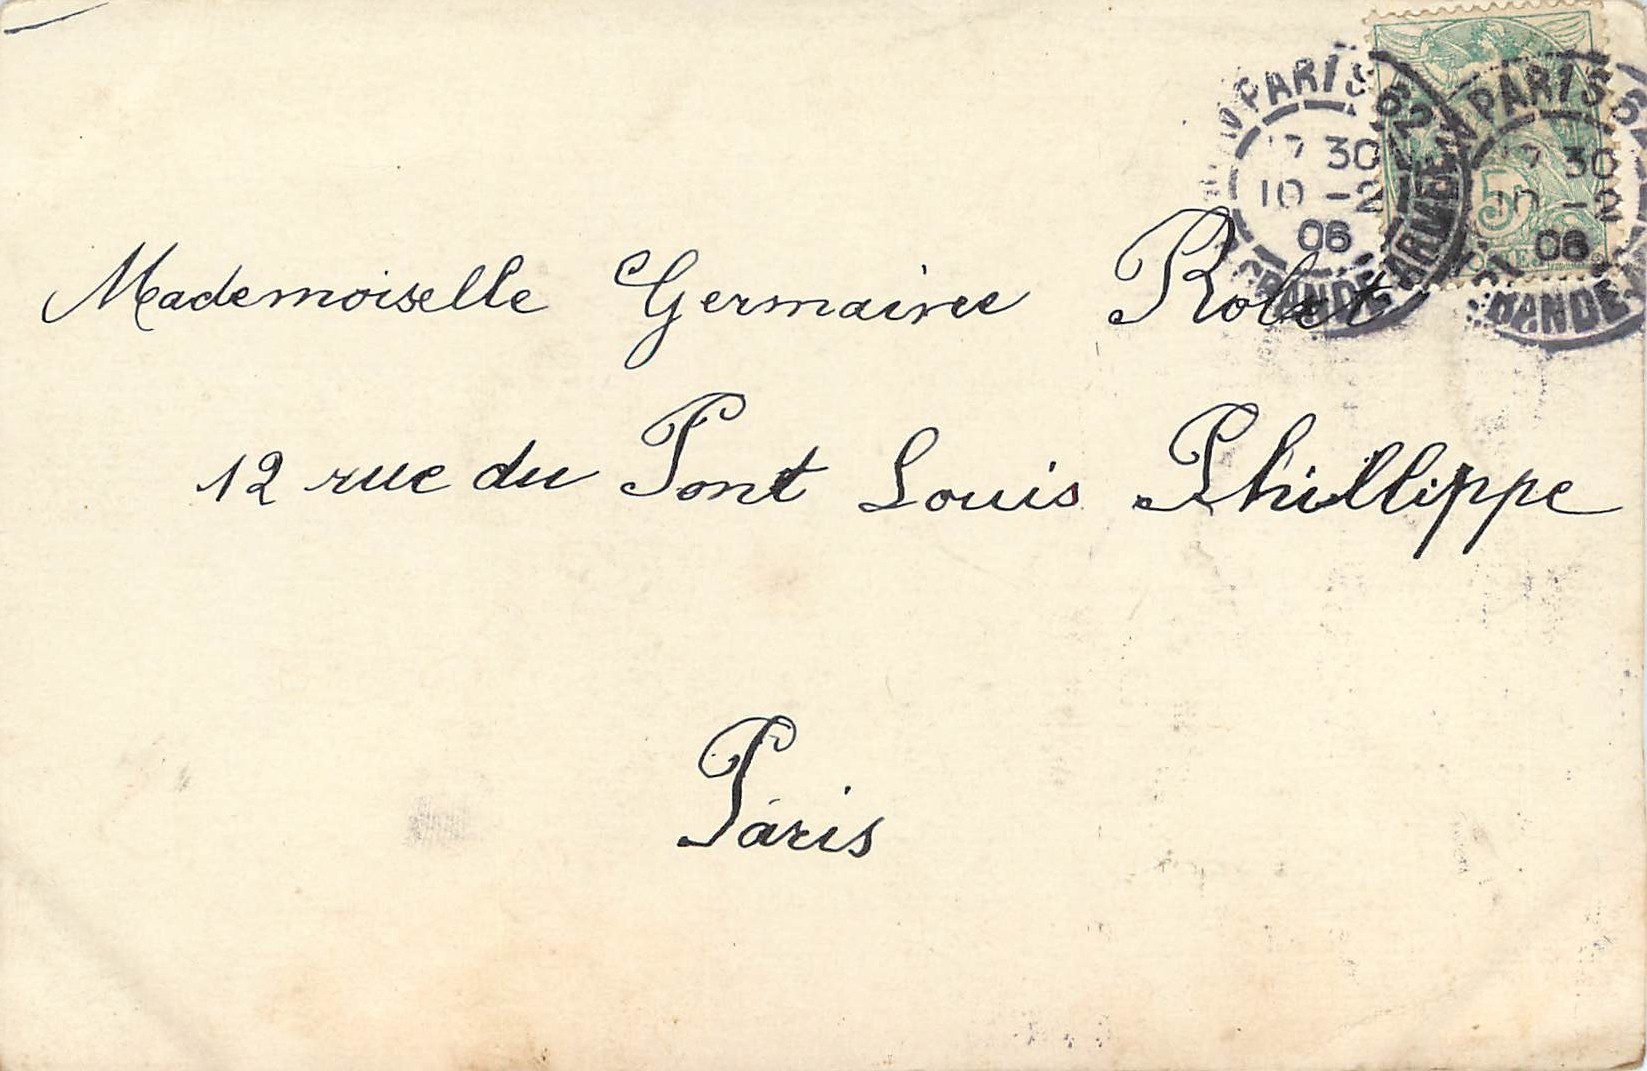 PARIS 62
17 30
10 -2
06
GRANDE ARMEE
PARIS 62
17 30
10 -2
06
GRANDE
5
Mademoiselle Germaine Rolet
12 rue du Pont Louis Phillippe
Paris